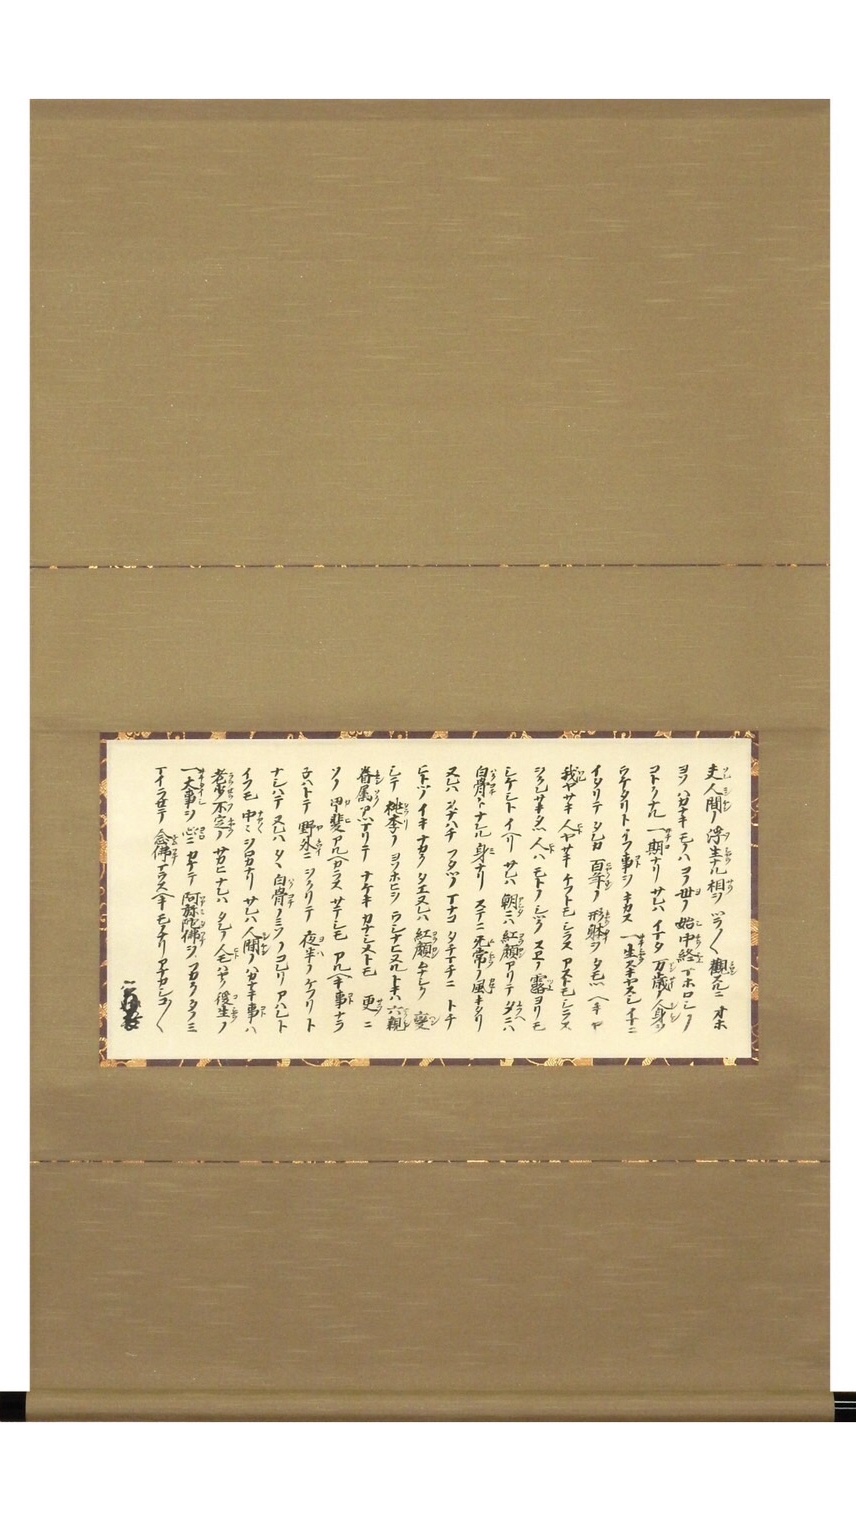 夫人間ノ浮生ナル相ヲツラ〱觀スルニオホ
ヨソハカナキモノハコノ世ノ始中終マホロシノ
コトクナル一期ナリサレハイマタ万歳ノ人身ヲ
ウケタリトイフ事ヲキカス一生スキヤスシイマニ
イタリテタレカ百年ノ形躰ヲタモツヘキヤ
我ヤサキ人ヤサキケフトモシラスアストモシラス
ヲクレサキタツ人ハモトノシツクスヱノ露ヨリモ
シケシトイヘリサレハ朝ニハ紅顔アリテ夕ニハ
白骨トナレル身ナリステニ无常ノ風キタリ
ヌレハスナハチフタツノマナコタチマチニトチ
ヒトツノイキナカクタエヌレハ紅顔ムナシク變
シテ桃李ノヨソホヒヲウシナヒヌルトキハ六親
眷属アツマリテナケキカナシメトモ更ニ
ソノ甲斐アルヘカラスサテシモアルヘキ事ナラ
ネハトテ野外ニヲクリテ夜半ノケフリト
ナシハテヌレハタヽ白骨ノミソノコレリアハレト
イフモ中〻ヲロカナリサレハ人間ノハカナキ事ハ
老少不定ノサカヒナレハタレノ人モハヤク後生ノ
一大事ヲ心ニカケテ阿弥陀佛ヲフカクタノミ
マイラセテ念佛マウスヘキモノナリアナカシコ〱